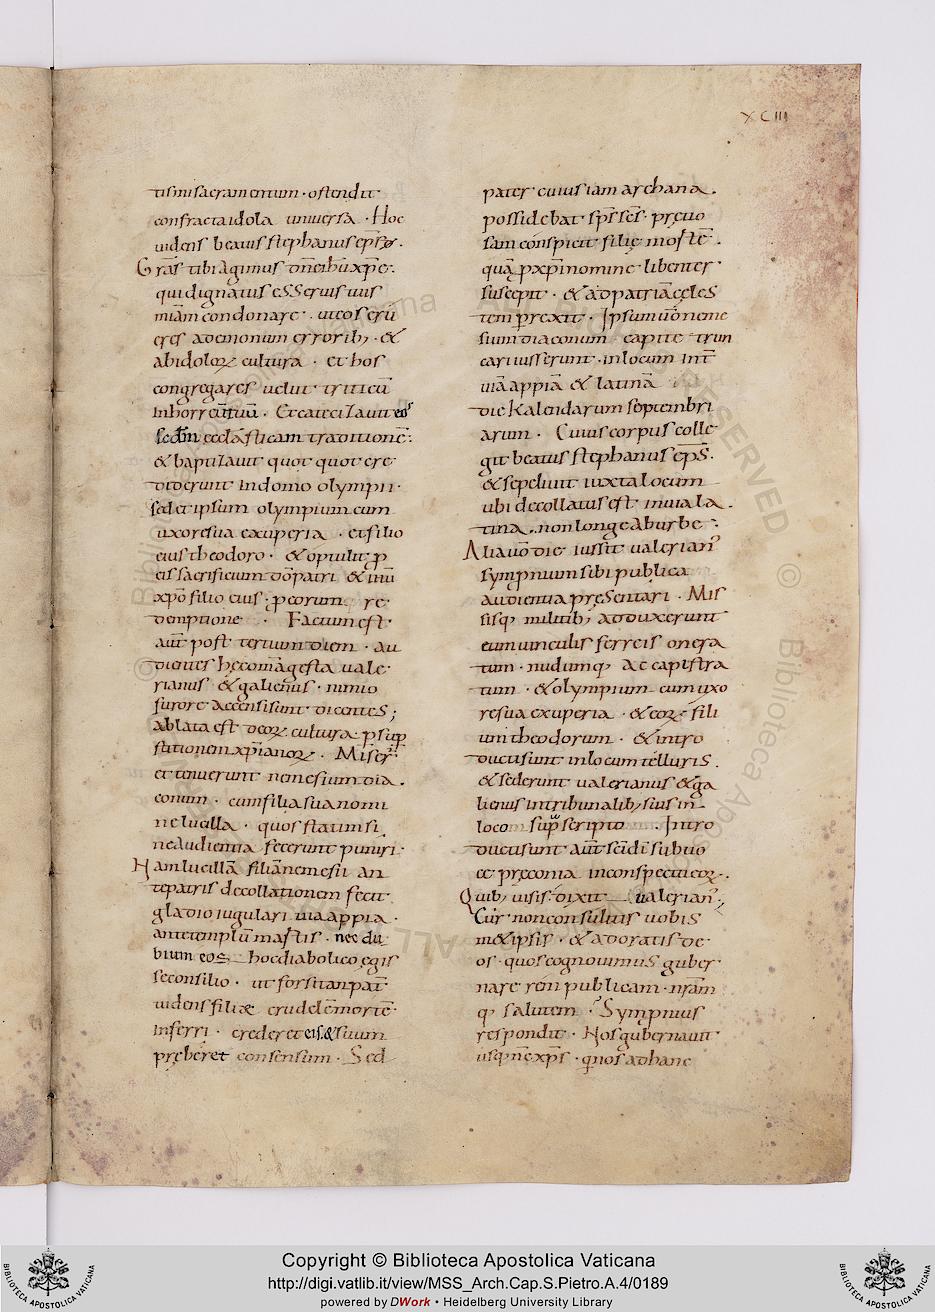 XCIII
tismi sacramentum · ostendit
confracta idola universa · Hoc
uidens beatus stephanus ep̄s .
Grās tibi agimus dn̄e ihū xp̄e·
qui dignatus es seruis tuis
miām condonare · ut eos eru
eres a demonum erroribꝫ · &
ab idoloꝝ cultura · et hos
congregares uelut triticū
in horreū tuū · Et catecizauit eos
secdm ecclāsticam traditionē·
& baptizauit quot quot cre
diderunt in domo olympii ·
sed et ipsum olympium cum
uxore sua exuperia · et filio
eius theodoro · & optulit ꝓ
eis sacrificium dō patri & ihū
xpō filio eius ; ꝓ eorum re
demptione · Factum est ·
aūt post tertium diem · au
dientes hęc omnia gesta uale
rianus & galienus · nimio
furore accensi sunt dicentes ;
Ablata est deoꝝ cultura · ꝑ sup
stitionem xpīanoꝝ · Miser̄
et tenuerunt nemesium dia .
conum · cum filia sua nomi
ne lucilla · quos statim si
ne audientia fecerunt puniri ·
Nam lucillā filiā nemesii an
te patris decollationem fecit
gladio iugulari uia appia ·
ante templū martis · nec du
bium eos hoc diabolico egis
se consilio · ut forsitan pat̄
uidens filiæ crudelē mortē
inferri · crederet eis & suum
pręberet consensum · Sed
pater cuius iam archana .
possidebat sp̄s sc̄s · pręuo
sam conspicit filię mortē .
quā ꝓ xp̄i nomine libenter
suscepit · & ad patriā cęles
tem perrexit · Ipsum uō neme
sium diaconum capite trun
cari iusserunt · in locum int̄
uiā appiā & latinā
die kalendarum septembri
arum · Cuius corpus colle
git beatus stephanus ep̄s ·
& sepeliuit iuxta locum
ubi decollatus est in uia la .
tina .. non longe ab urbe ·
Alia uō die iussit ualerian᾿
sympnium sibi publica
audientia pręsentari · Mis
sisq militibꝫ adduxerunt
eum uinculis ferreis onera
tum · nudumqꝫ ac capistra
tum · & olympium cum uxo
re sua exuperia · & eoꝝ fili
um theodorum · & intro
ducti sunt in locum telluris .
& sederunt ualerianus & ga
lienus in tribunalibꝫ suis in
loco sup̄ scripto · Intro
ducti sunt aūt sc̄di sub uo
ce pręconia in conspectu eoꝝ ·
Quibꝫ uisis · dixit ualerian᾿ ·
Cur non consultis uobis
m& ipsis · & adoratis de
os · quos cognouimus guber
nare rem publicam · nrām
qꝫ salutem · Sympnius
respondit · Nos gubernauit
usqꝫ nē xp̄s · quos ad hanc
Copyright © Biblioteca Apostolica Vaticana
http://digi.vatlib.it/view/MSS_Arch.Cap.S.Pietro.A.4/0189
powered by DWork • Heidelberg University Library